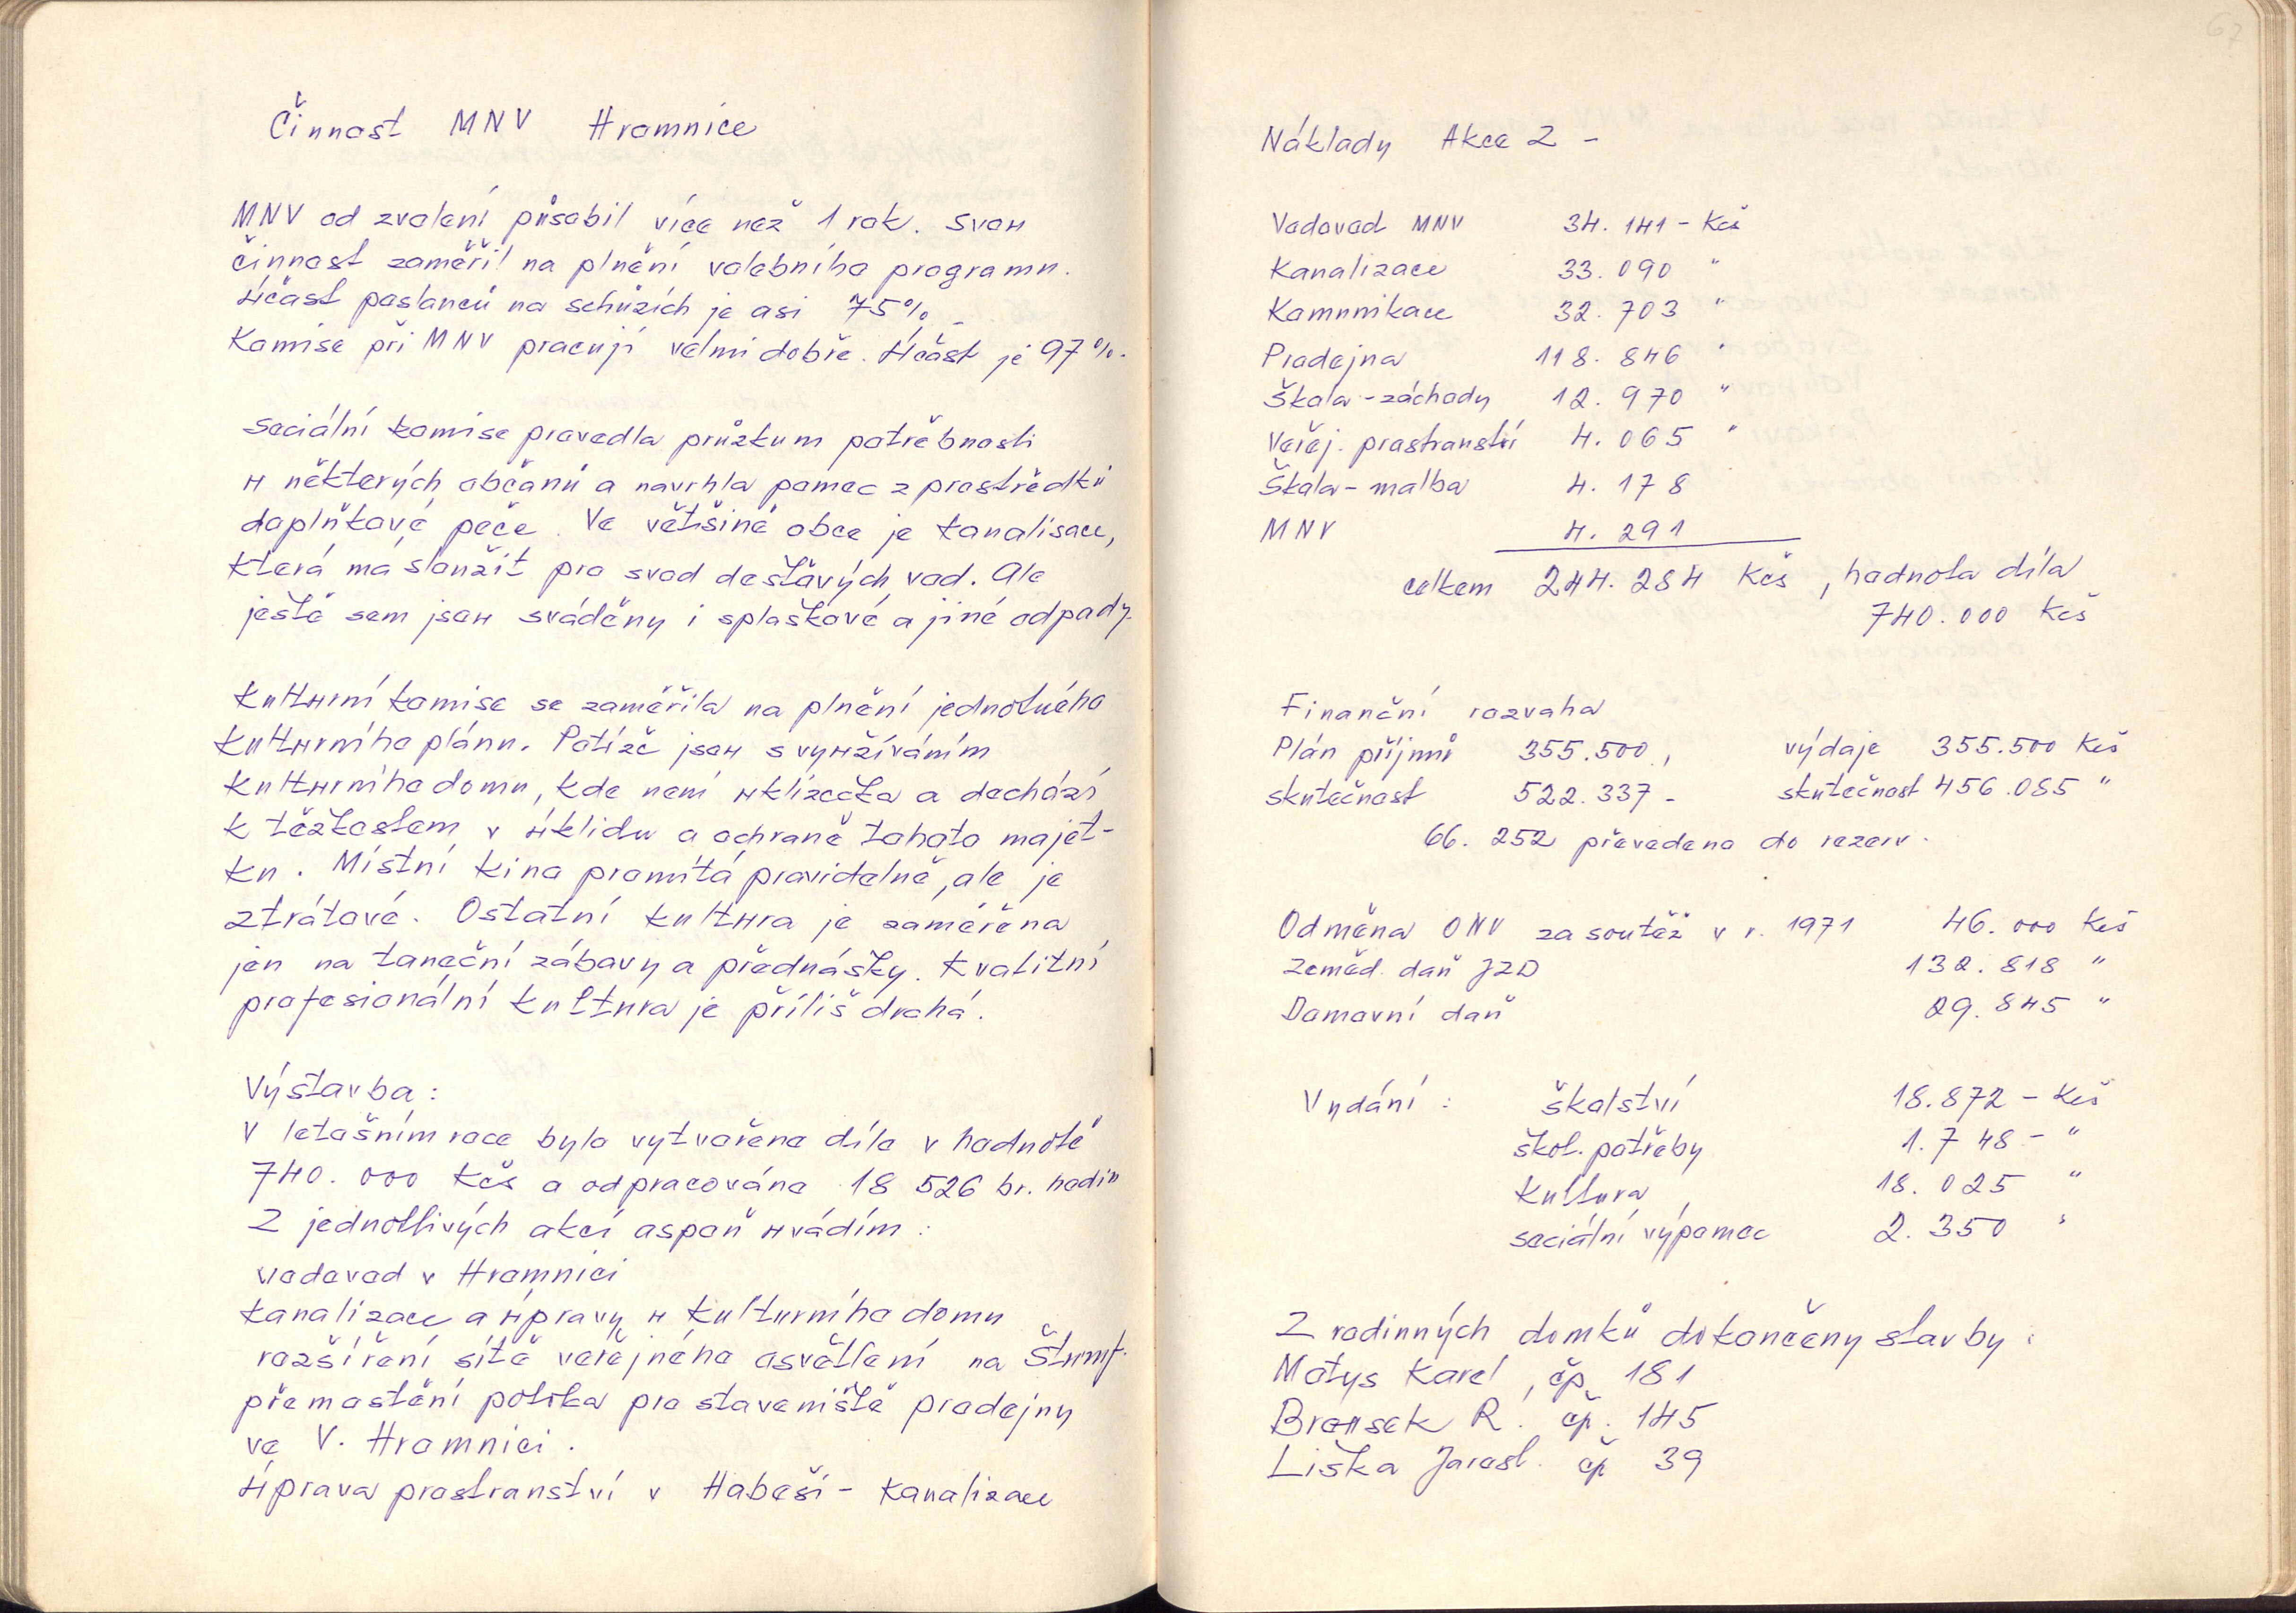 Činnost MNV Hromnice
MNV od zvolení působil více než 1 rok. Svou
činnost zaměřil na plnění volebního programu.
Účast poslanců na schůzích je asi 75%.
Komise při MNV pracují velmi dobře. Účast je 97%.
Sociální komise provedla průzkum potřebnosti
u některých občanů a navrhla pomoc z prostředků
doplňkové péče. Ve většině obce je kanalisace,
která má sloužit pro svod dešťových vod. Ale
ještě sem jsou sváděny i splaškové a jiné odpady.
Kulturní komise se zaměřila na plnění jednotného
kulturního plánu. Potíže jsou s využíváním
kulturního domu, kde není uklízečka a dochází
k těžkostem v úklidu a ochraně tohoto majet-
ku. Místní kino promítá pravidelně, ale je
ztrátové. Ostatní kultura je zaměřena
jen na taneční zábavy a přednášky. Kvalitní
profesionální kultura je příliš drahá.
Výstavba:
V letošním roce bylo vytvořeno dílo v hodnotě
740.000 Kčs a odpracováno 18 526 br. hodin
Z jednotlivých akcí aspoň uvádím:
vodovod v Hromnici
kanalizace a úpravy u kulturního domu
rozšíření sítě veřejného osvětlení na Štumf.
přemostění potoka pro staveniště prodejny
ve V. Hromnici.
Úprava prostranství v Habeši - kanalizace
67
Náklady Akce Z -
Vodovod MNV 34.141 - Kčs
Kanalizace 33.090 "
Komunikace 32.703 "
Prodejna 118.846 "
Škola - záchody 12.970 "
Veřej. prostranství 4.065 "
Škola - malba 4.178
MNV 4.291
celkem 244.284 Kčs, hodnota díla
740.000 Kčs
Finanční rozvaha
Plán příjmů 355.500, výdaje 355.500 Kčs
skutečnost 522.337 - skutečnost 456.085 "
66.252 převedeno do rezerv.
Odměna ONV za soutěž v r. 1971 46.000 Kčs
Zeměd. daň JZD 132.818 "
Domovní daň 29.845 "
Vydání: školství 18.872 - Kčs
škol. potřeby 1.748 - "
Kultura 18.025 "
sociální výpomoc 2.350 "
Z rodinných domků dokončeny stavby:
Matys Karel, čp. 181
Brousek R. čp. 145
Liška Jarosl. čp 39